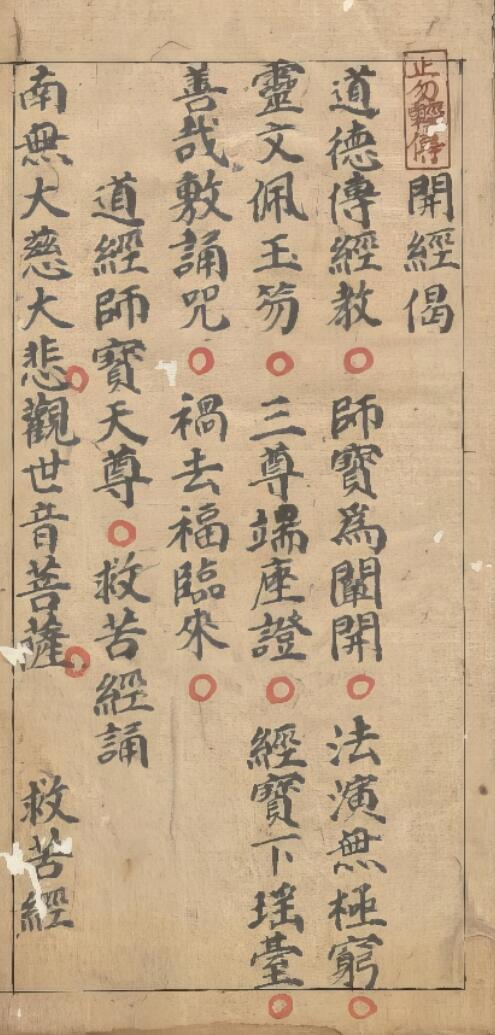 開經偈
道德傳經教○師寶為闡開○法演無極窮○
靈文佩玉笏○三尊端座證○經寶下瑤臺○
善哉敷誦咒○禍去福臨來○
道經師寶天尊○救苦經誦
南無大慈大悲○觀世音菩薩○救苦經